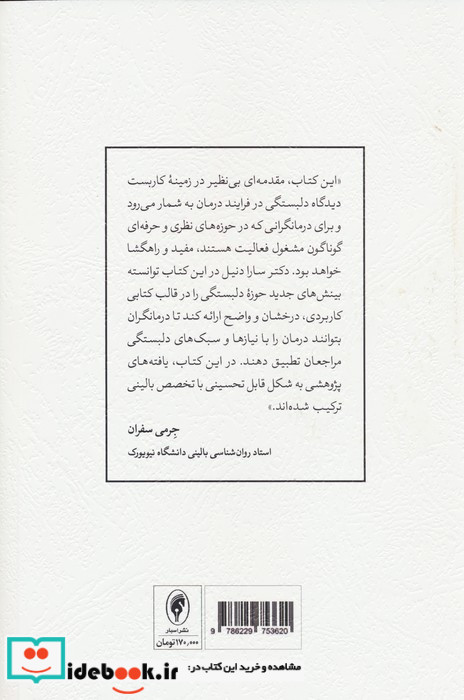 «این کتاب، مقدمه‌ای بی‌نظیر در زمینهٔ کاربست
دیدگاه دلبستگی در فرایند درمان به شمار می‌رود
و برای درمانگرانی که در حوزه‌های نظری و حرفه‌ای
گوناگون مشغول فعالیت هستند، مفید و راهگشا
خواهد بود. دکتر سارا دنیل در این کتاب توانسته
بینش‌های جدید حوزهٔ دلبستگی را در قالب کتابی
کاربردی، درخشان و واضح ارائه کند تا درمانگران
بتوانند درمان را با نیازها و سبک‌های دلبستگی
مراجعان تطبیق دهند. در این کتاب، یافته‌های
پژوهشی به شکل قابل تحسینی با تخصص بالینی
ترکیب شده‌اند.»
جرمی سفران
استاد روان‌شناسی بالینی دانشگاه نیویورک
نشر اسبار
۱۷۰,۰۰۰تومان
9 786229 753620
مشاهده و خرید این کتاب در:
idebook.ir